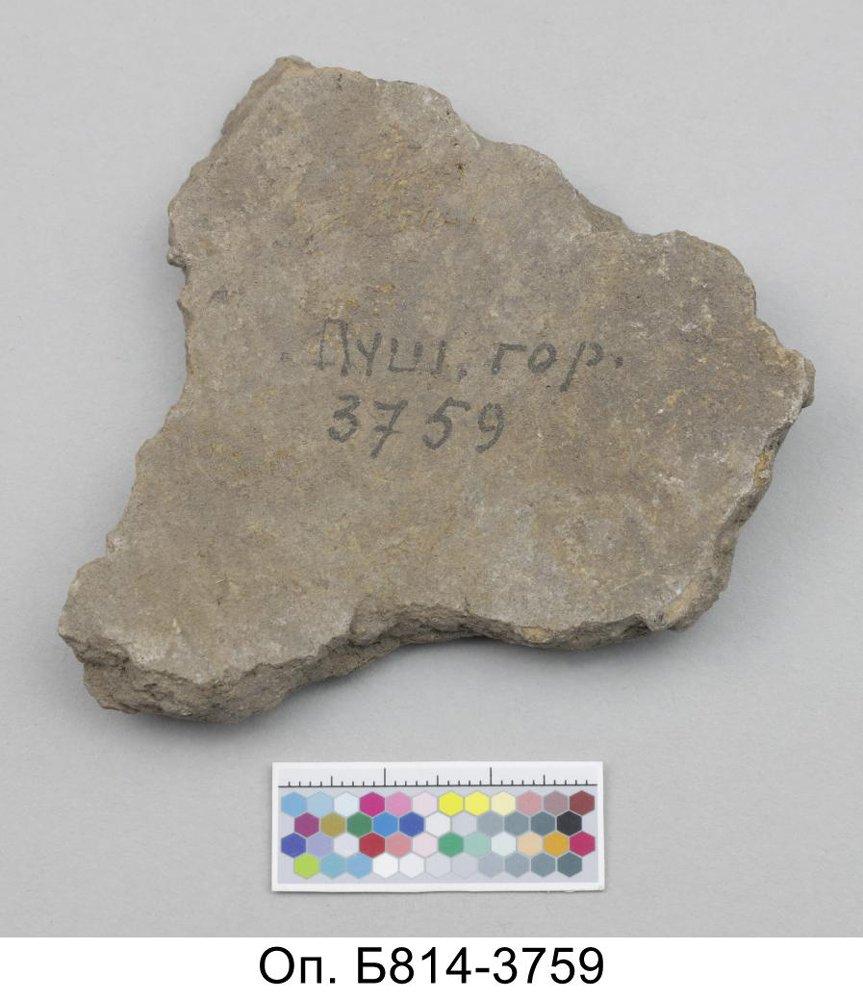 Пуш. гор.
3759
Оп. Б814-3759